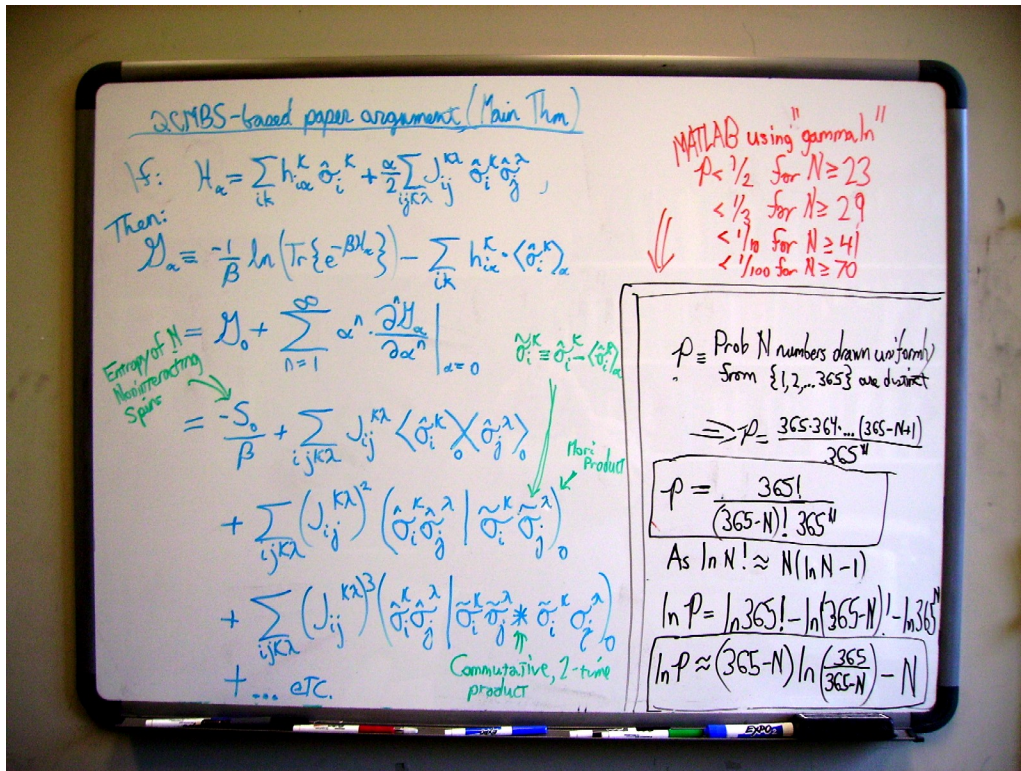 2CMBS-based paper argument, (Main Thm)
If: H_α = Σ_{ik} h_{iα}^κ σ̂_i^κ + α/2 Σ_{ijκλ} J_{ij}^{κλ} σ̂_i^κ σ̂_j^λ ,
Then:
𝒢_α ≡ -1/β ln(Tr{e^{-βH_α}}) - Σ_{ik} h_{iα}^κ · ⟨σ̂_i^κ⟩_α
= 𝒢_0 + Σ_{n=1}^∞ α^n · ∂^n𝒢_α/∂α^n |_{α=0}
σ̃_i^κ ≡ σ̂_i^κ - ⟨σ̂_i^κ⟩_α
Entropy of N
Noninteracting
Spins
= -S_0/β + Σ_{ijκλ} J_{ij}^{κλ} ⟨σ̂_i^κ⟩_0 ⟨σ̂_j^λ⟩_0
Mori
Product
+ Σ_{ijκλ} (J_{ij}^{κλ})² (σ̂_i^κ σ̂_j^λ | σ̃_i^κ σ̃_j^λ)_0
+ Σ_{ijκλ} (J_{ij}^{κλ})³ (σ̂_i^κ σ̂_j^λ | σ̃_i^κ σ̃_j^λ * σ̃_i^κ σ̃_j^λ)_0
Commutative, 2-time
product
+ ... etc.
MATLAB using "gammaln"
P < 1/2 for N ≥ 23
< 1/3 for N ≥ 29
< 1/10 for N ≥ 41
< 1/100 for N ≥ 70
P ≡ Prob N numbers drawn uniformly
from {1,2,...365} are distinct
⇒ P = 365·364·...(365-N+1) / 365^N
P = 365! / (365-N)! 365^N
As ln N! ≈ N(ln N - 1)
ln P = ln 365! - ln(365-N)! - ln 365^N
ln P ≈ (365-N) ln(365/(365-N)) - N
EXPO2